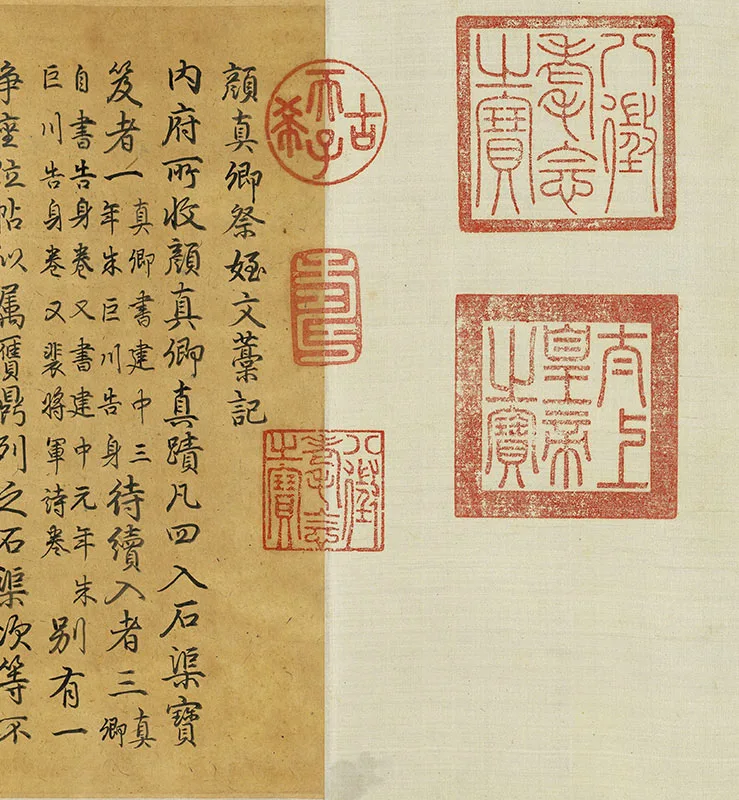 八徵耄念之寶
太上皇帝之寶
古希天子
壽
八徵耄念之寶
顔真卿祭姪文藳記
內府所收顔真卿真蹟凡四入石渠寶
笈者一真卿書建中三年朱巨川告身待續入者三真卿
自書告身卷又書建中元年朱巨川告身卷又裴將軍詩卷別有一
爭座位帖似属贗鼎列之石渠次等不